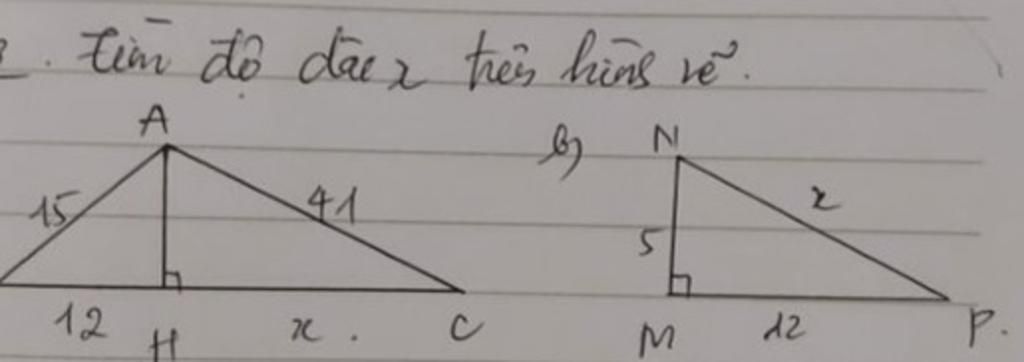 . tìm độ dài x trên hình vẽ.
A
b)
N
15
41
x
5
12
H
x.
C
M
12
P.